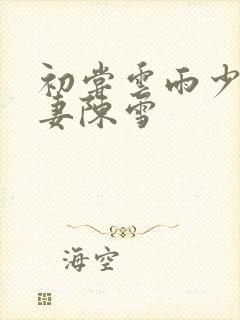 初嘗雲雨少
妻陳雪
海空